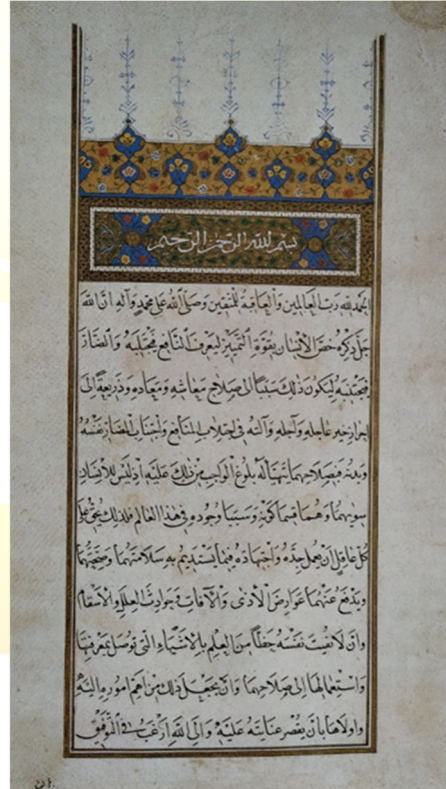 بسم الله الرحمن الرحيم
الحمد لله رب العالمين والعاقبة للمتقين وصلى الله على محمد وآله ان الله
جل ذكره خص الانسان بقوة التمييز ليعرف النافع فيجتلبه والضار
فيجتنبه ليكون ذلك سببا الى صلاح معاشه ومعاده وذريعة الى
احراز خير عاجله وآجله وآلته في اجتلاب المنافع واجتناب المضار نفسه
وبدنه فبصلاحهما يتهيأ له بلوغ الواجب من ذلك عليه اذ ليس للانسان
سواهما وهما قسما كونه وسببا وجوده في هذا العالم فلذلك يحق على
كل عاقل ان يعمل جده واجتهاده فيما يستديم به سلامتهما وصحتهما
ويدفع عنهما عوارض الاذى والآفات وحوادث العلل والاسقام
وان لا تفيت نفسه حظا من العلم بالاشياء التي توصل بمعرفتها
واستعمالها الى صلاحهما وان يجعل ذلك من اهم اموره اليه
واولاها بان يقصر عنايته عليه والى الله ارغب في التوفيق